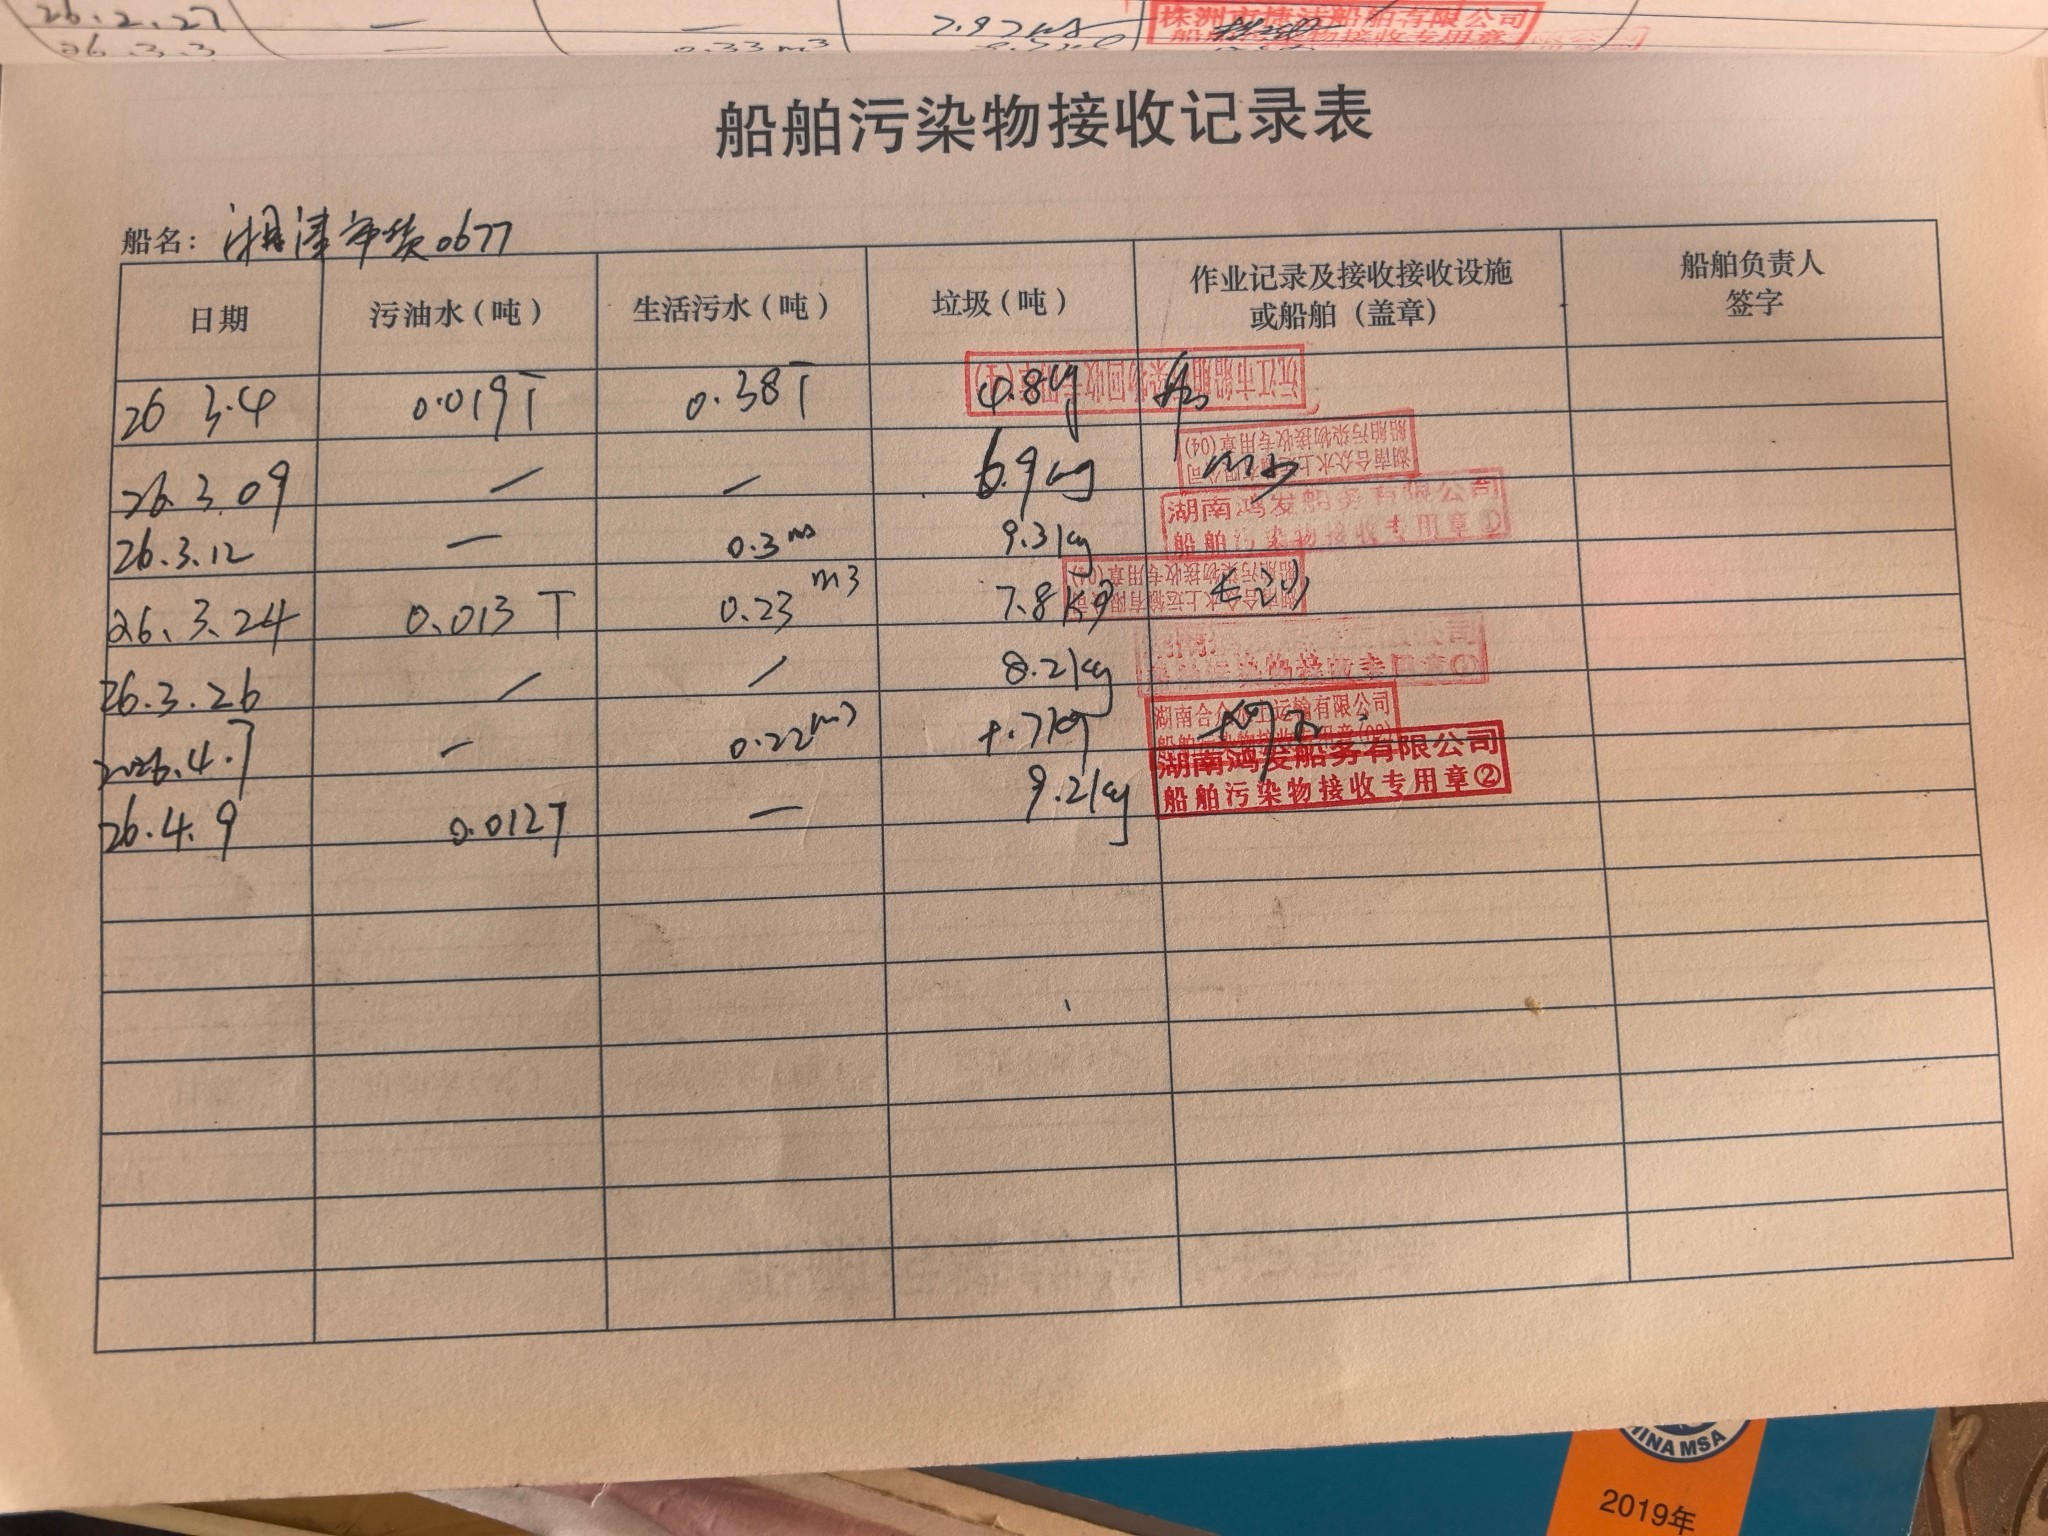 26.2.27 — — 7.97kg 株洲市捷洁船舶有限公司
船舶污染物接收专用章
26.3.3 — 0.33m³
船舶污染物接收记录表
船名：湘津市货0677
日期 污油水（吨） 生活污水（吨） 垃圾（吨） 作业记录及接收接收设施或船舶（盖章） 船舶负责人签字
26 3.4 0.019T 0.38T 4.8kg
26.3.09 — — 6.9kg 湖南合众水上运输有限公司
船舶污染物接收专用章(04)
26.3.12 — 0.3m³ 9.3kg 湖南鸿发船务有限公司
船舶污染物接收专用章②
26.3.24 0.013T 0.23m3 7.8kg 长沙
湖南合众水上运输有限公司
船舶污染物接收专用章
26.3.26 / / 8.2kg
船舶污染物接收专用章①
2026.4.7 — 0.22m3 湖南合众水上运输有限公司
26.4.9 0.012T — 9.2kg 湖南鸿发船务有限公司
船舶污染物接收专用章②
CHINA MSA
2019年